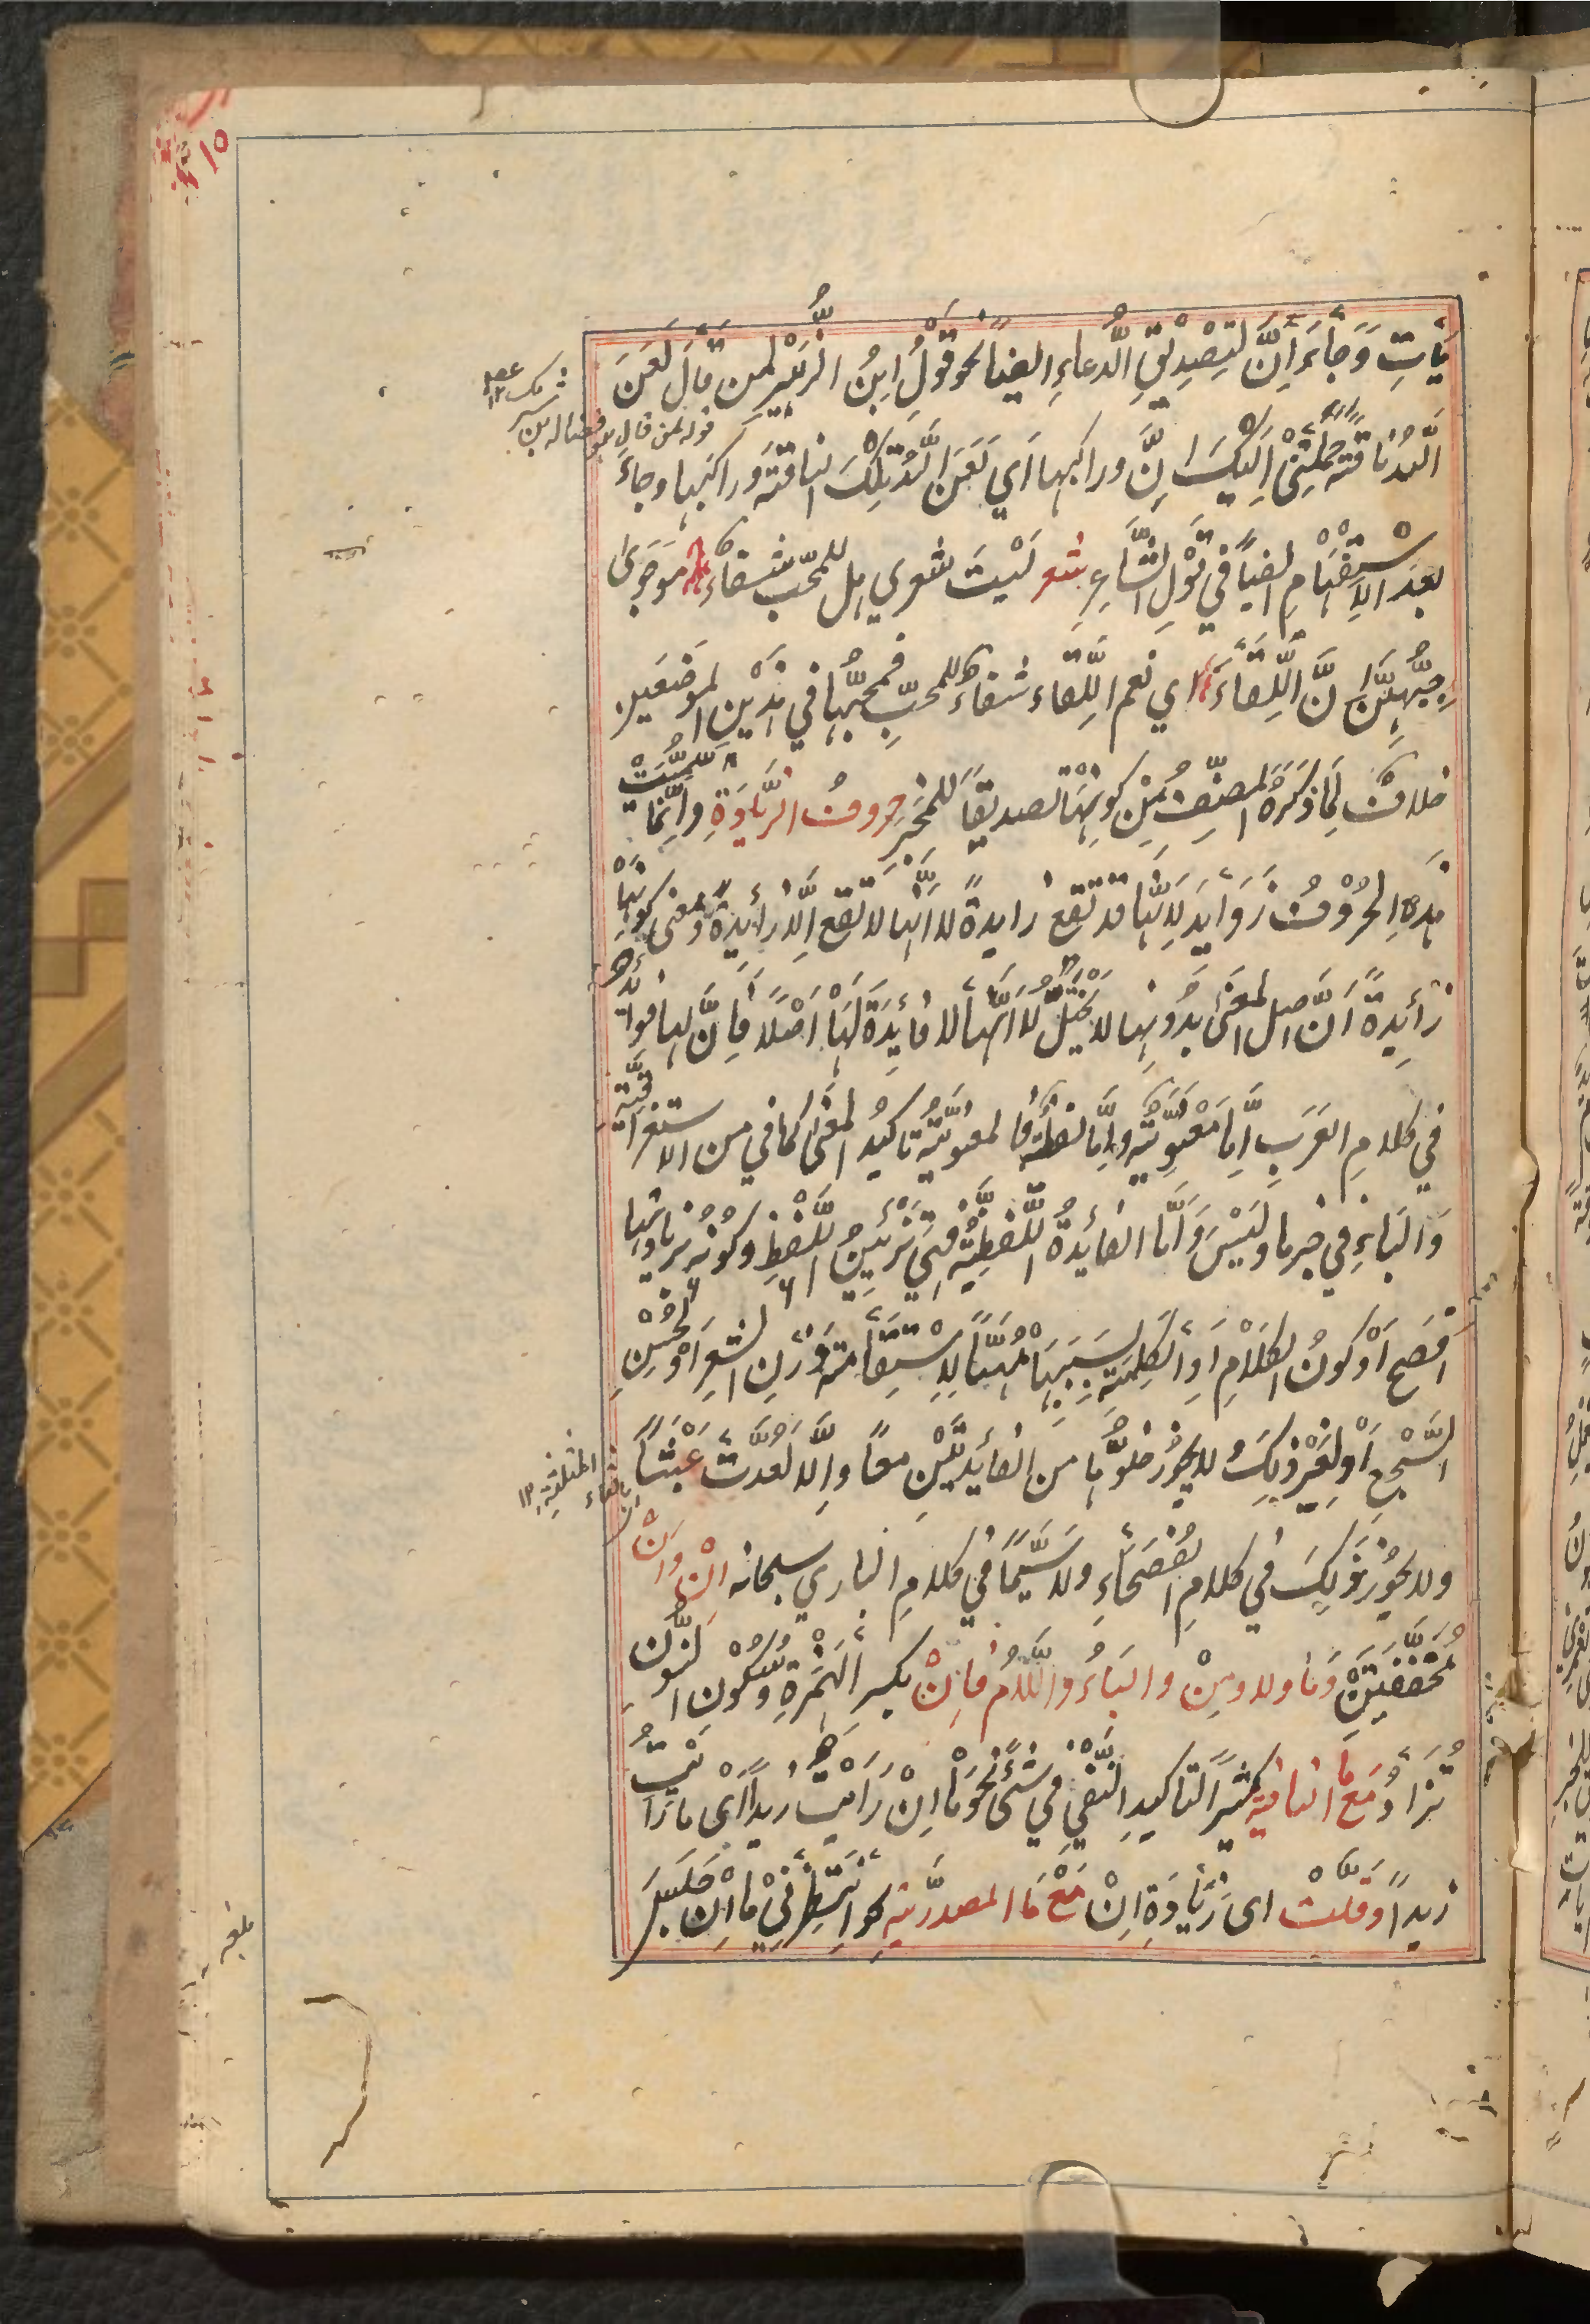 يَأتِ وَجَاءَ إِنَّ لِتَصْدِيْقِ الدُّعاءِ ايضًا نحو قَوْلُ ابنُ الزُّبَيْرِ لمن قَالَ لَعَنَ
اللهُ نَاقَةً حَمَلَتْنِيْ اِلَيْكَ اِنَّ وراكبها اَي لَعَنَ اللهُ تِلْكَ الناقَةَ وَرَاكبَها وجاءَ
بعدَ الاِسْتِفْهَامِ ايضًا فِي قَوْلِ الشَّاعِرِ شعر لَيْتَ شعري هل للمحبّ شفاءٌ من جوى
حُبِّهِنَّ اِنَّ اللِّقَاءَ اي نعم اللِّقاء شفاءٌ للمحبّ فمجيئُها في هذَيْنِ الموضَعَينِ
خلافُ لِمَا ذكَرَهُ المصنِّفُ مِنْ كونِهَا تصديقًا للمخْبِرِ حروفُ الزِّيَادَةِ وانَّما سُمِّيَتْ
هذه الحُرُوْفُ زَوَايدَ لِاَنَّها قد تقَعُ زايدةً لا اَنَّها لا تقع اِلّا زايدةً ومعنى كونِهَا
زائِدةً اَنَّ اصل المعنَى بدُونِها لا يَخْتَلُّ لا اَنَّها لا فائِدَةَ لَهَا اَصْلًا فاِنَّ لها فوائدَ
في كلامِ العَرَبِ اِمَّا مَعْنَوِيَّةٌ واِمَّا لفظيَّةٌ فالمعنويَّةُ تاكيدُ المعنَى كما في مِن الاستغراقيَّةِ
وَالبَاءِ في خبر ما ولَيْسَ وَاَمَّا الفائدةُ اللَّفظِيَّةُ فهي تَزْئِيْنُ اللَّفظِ وكونُه بزيادتِها
اَفْصَحَ اَوْ كونُ الكَلَامِ اَوِ الكَلِمَةِ بِسَبَبِهَا مُهيَّأً لِاِسْتِقَامَةِ وَزْنِ الشِّعرِ اَوْ لحُسْنِ
السَّجْعِ اَوْ لِغَيْرِ ذلِكَ ولا يجُوزُ خلوُّها من الفائدَتَيْنِ معًا واِلَّا لَعُدَّتْ عَبَثًا
ولا يجُوْزُ ذلِكَ في كلامِ الفُصَحَاءِ ولا سِيَّمَا في كلامِ الباري سبحانه اِنْ وَاَنْ
مُخَفَّفَتَيْنِ وَمَا ولا ومِنْ والبَاءُ واللّامُ فاِنْ بكسرِ الهَمْزةِ وسُكُونِ النُّون
تُزَادُ مَعَ مَا النافيةِ كثيرًا لتاكيدِ النَّفْيِ في شئٍ نحو مَا اِنْ رَاَيْتُ زيدًا اَى ما رَاَيْتُ
زيدًا وَقَلَّتْ اى زِيَادَةِ اِنْ مَعَ مَا المصدَرِيَّةِ نحو اِنْتَظِرْنِيْ مَا اِنْ جَلَسَ
قوله لمن قال